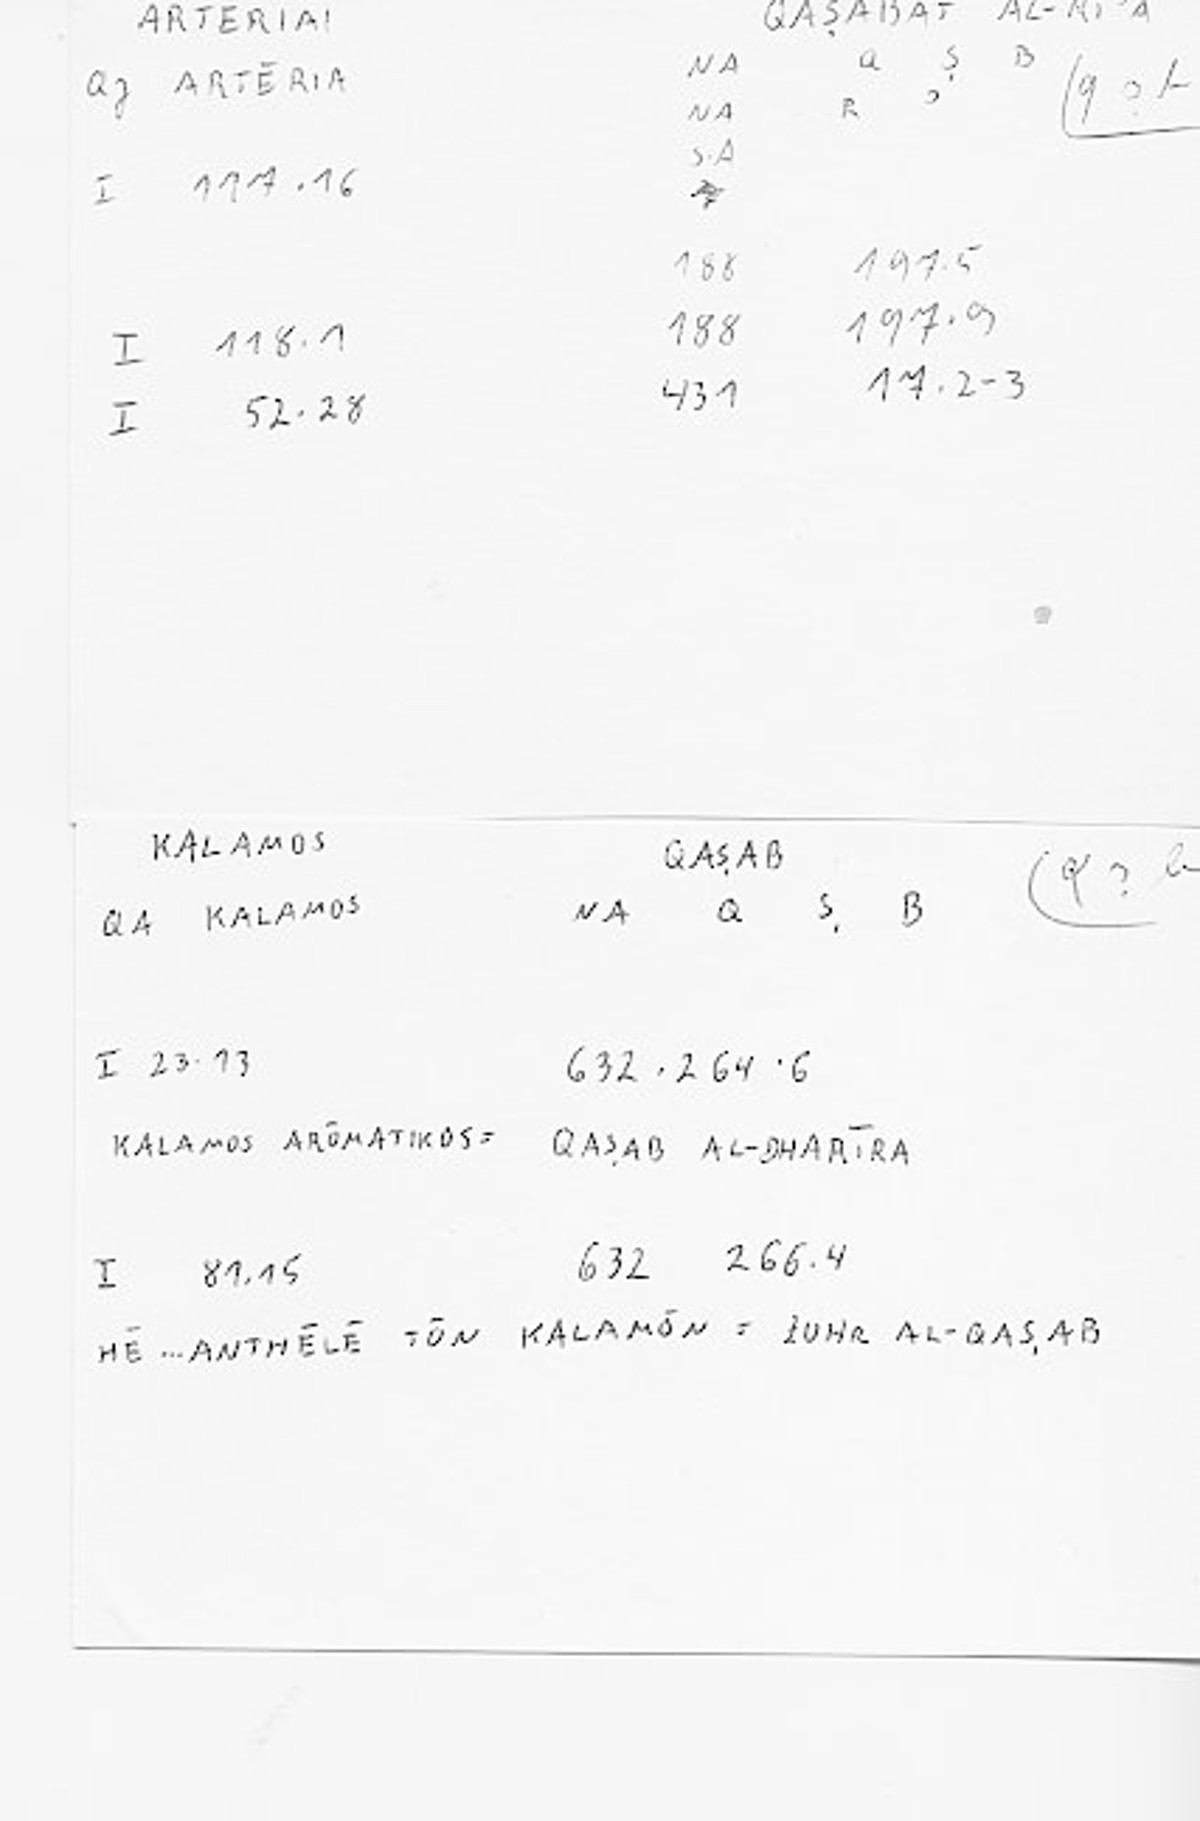 ARTERIAI QAṢABAT AL-RI'A
QJ ARTĒRIA NA Q Ṣ B
NA R ʾ
SA
I 117.16
188 197.5
I 118.1 188 197.9
I 52.28 431 17.2-3
KALAMOS QAṢAB
QA KALAMOS NA Q Ṣ B
I 23.13 632.264.6
KALAMOS ARŌMATIKOS = QAṢAB AL-DHARĪRA
I 81.15 632 266.4
HĒ ... ANTHĒLĒ TŌN KALAMŌN = ZUHR AL-QAṢAB